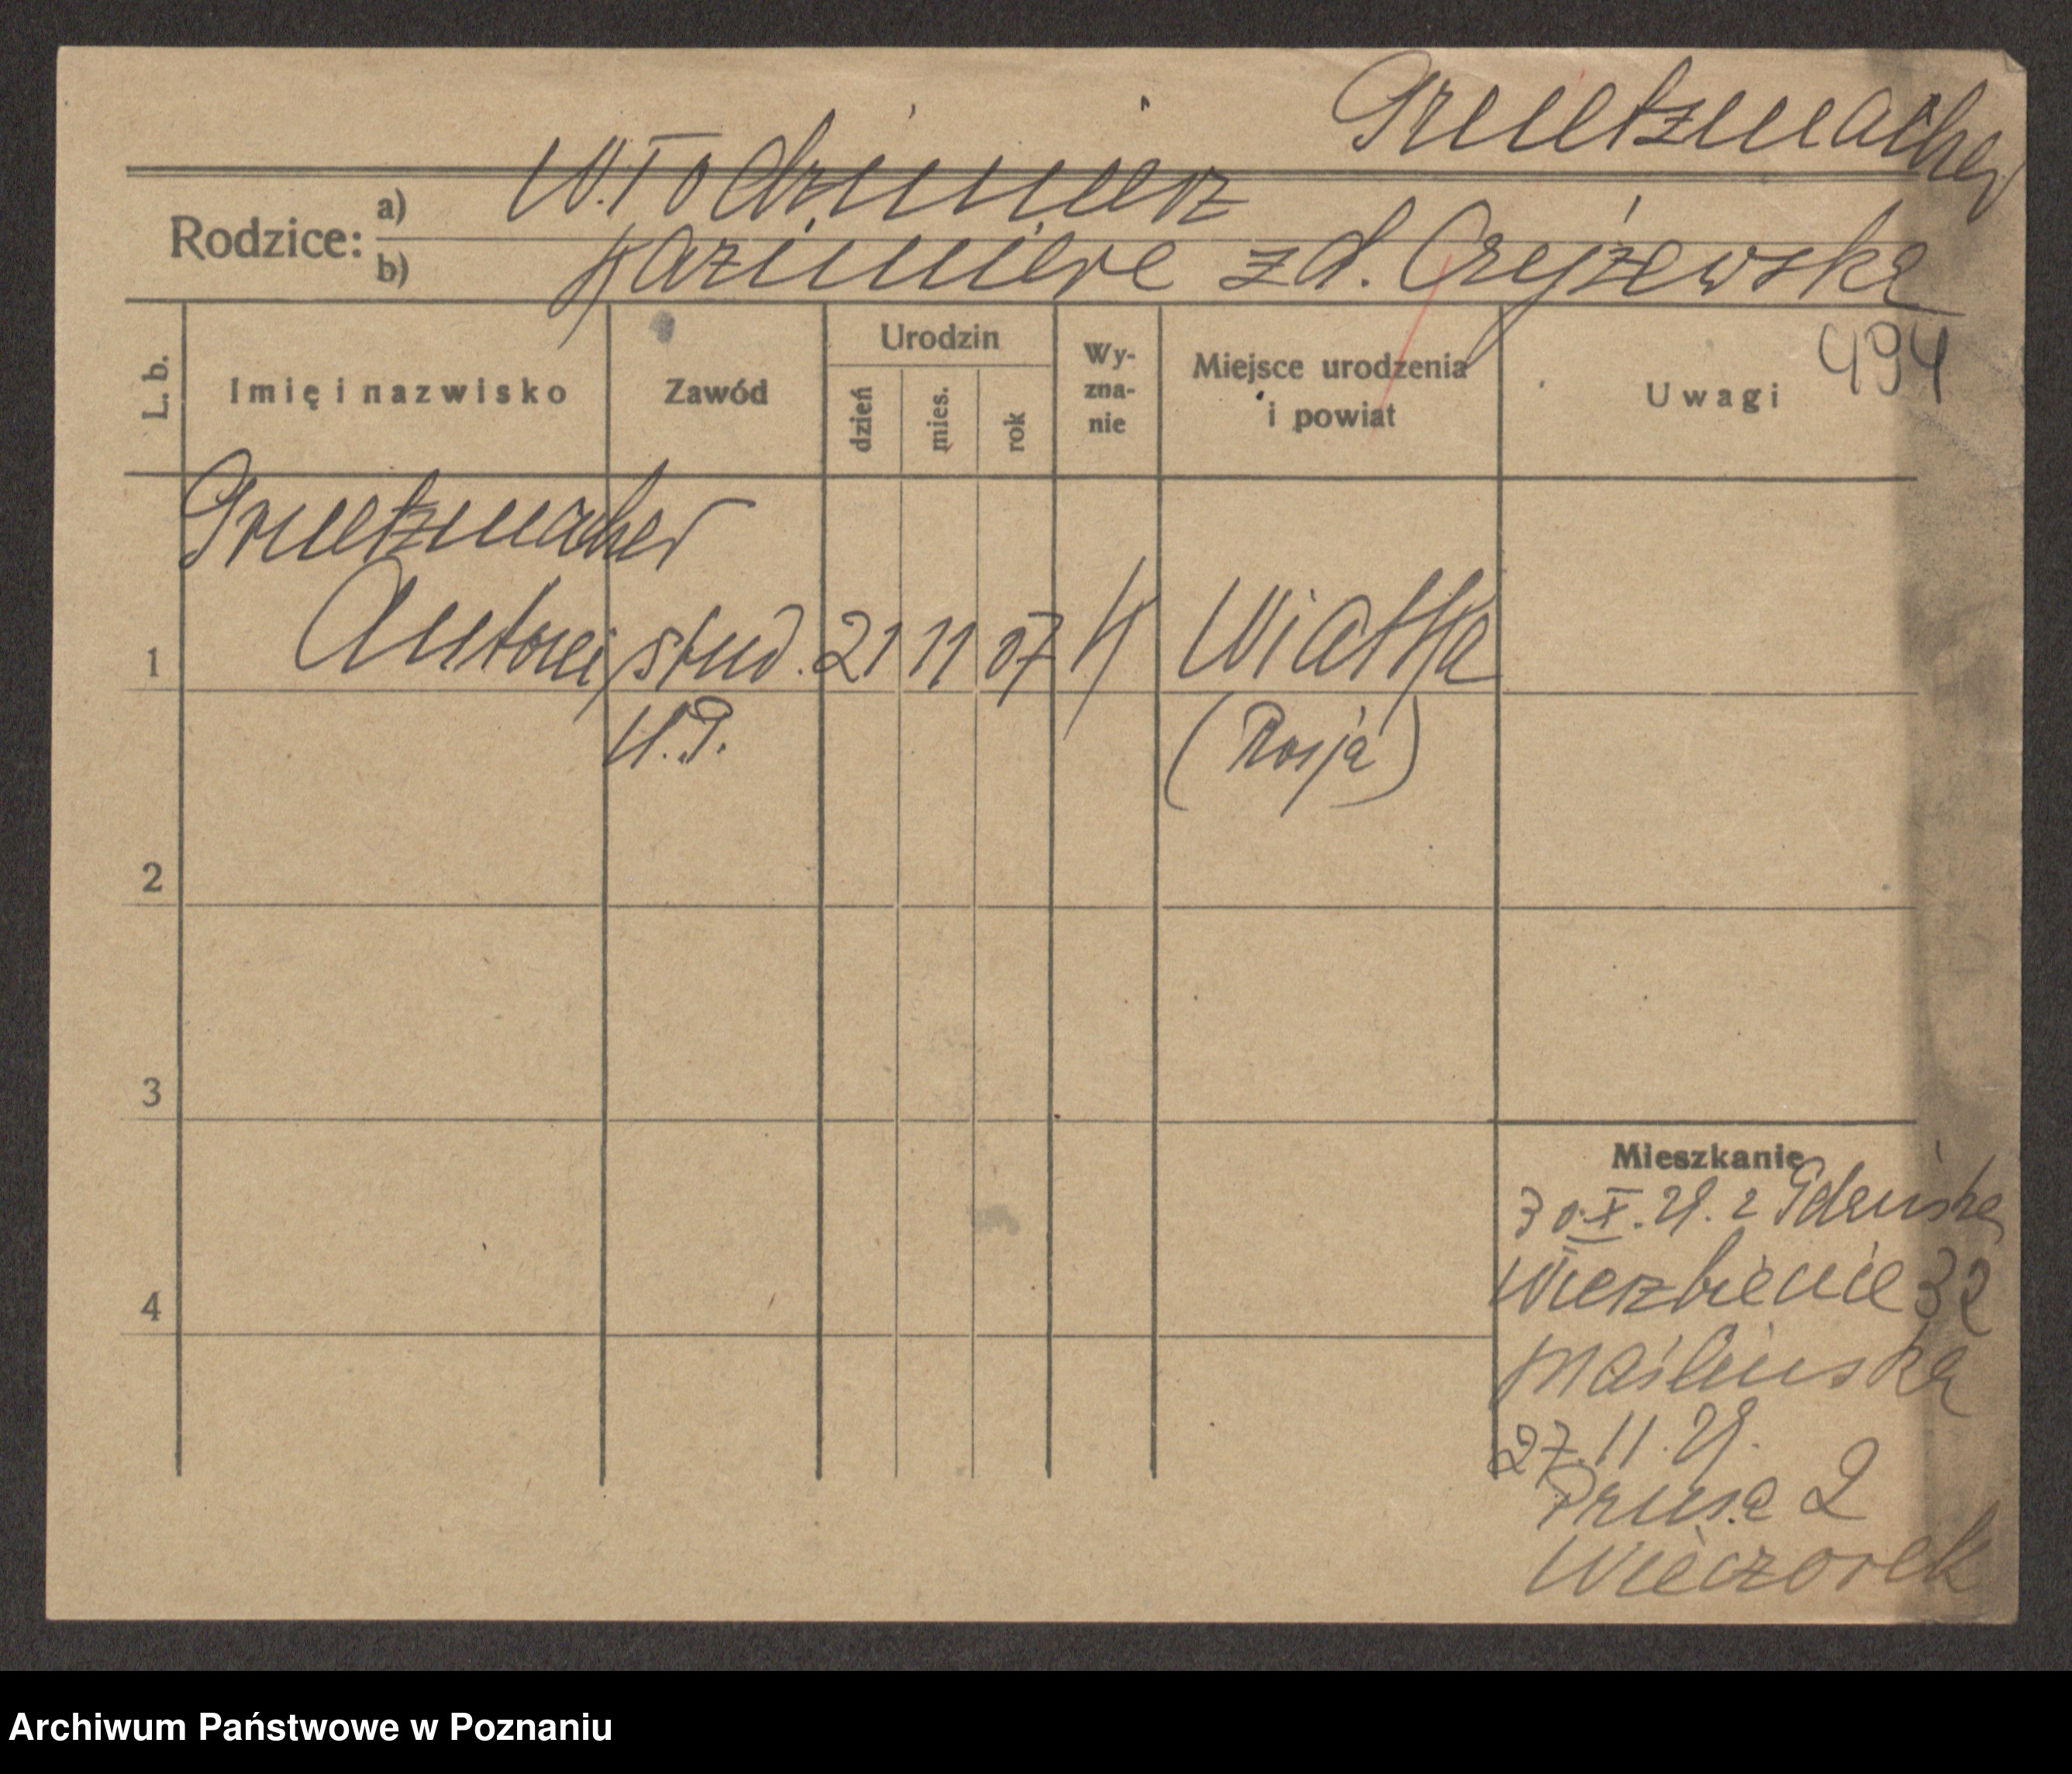 Gruetzmacher
Włodzimierz
Rodzice: a)
b) Kazimiera z d. Czyżewska
494
L. b. Imię i nazwisko Zawód Urodzin dzień mies. rok Wy-zna-nie Miejsce urodzenia i powiat Uwagi
Gruetzmacher
1 Antoni stud. 21 11 07 K Wiatka
U.P. (Rosja)
2
3
Mieszkanie
30.X.29. z Gdańska
Wierzbięcice 32
4
Maślińska
27.11.29.
Prusa 2
Wieczorek
Archiwum Państwowe w Poznaniu